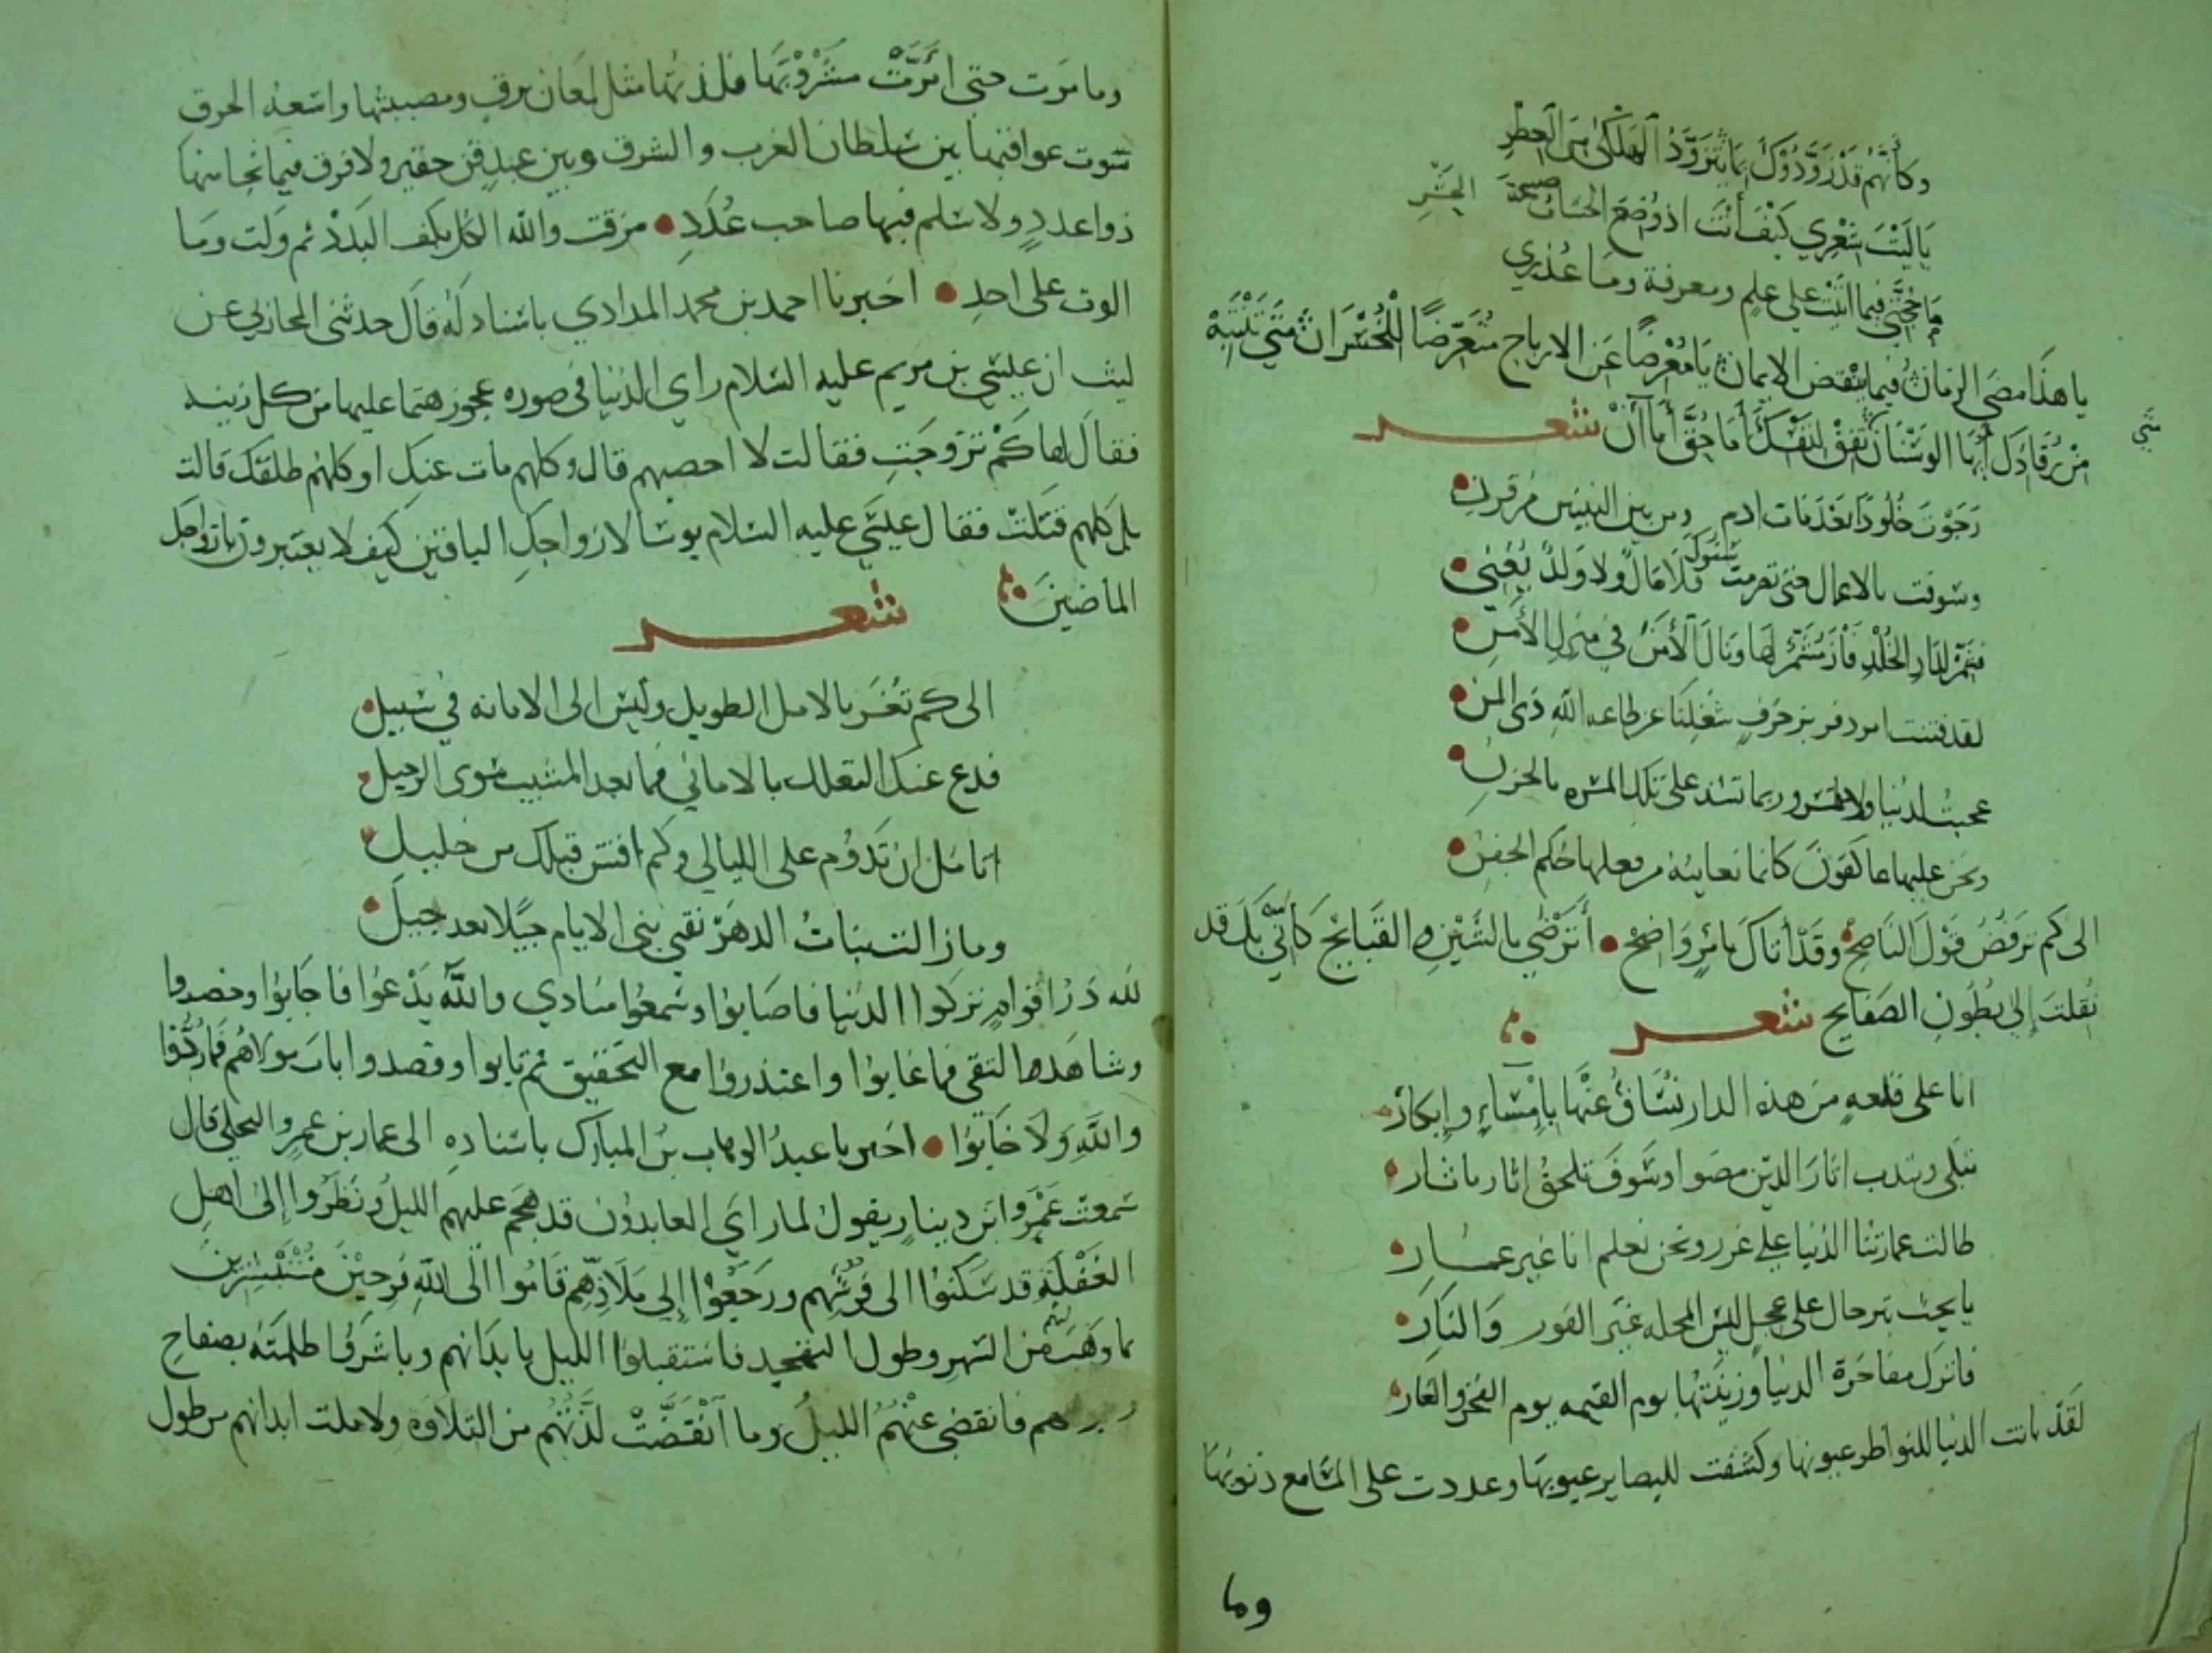 وكأنهم قد زودوك بما يتزود الهلكى من العطر
يا ليت شعري كيف أنت اذا وضع الحساب صبيحة الحشر
ما حجتي فيما اتيت على علم ومعرفة وما عذري
يا هذا مضى الزمان فيما ينقض الايمان يا معرضا عن الارباح متعرضا للخسران متى تنتبه
من رقادك أيها الوسنان تفق لنفسك أما حق أما آن شعر
رجوت خلودا بعد ما مات ادم ومن بين النبيين من قرن
وسوفت بالاعمال حتى تصرمت سنوك فلا مال ولا ولد يغني
فشمر لدار الخلد فاز مشمر لها ونال الأمن في منزل الأمن
لقد فتنت من زخرف شغلتنا عن طاعه الله ذي المن
عجبت لدنيا ولا تسر وربما تشد على تلك المسره بالحزن
ونحن عليها عاكفون كانما نعاينه من فعلها حكم الجفن
الى كم ترفض قول الناصح وقد أتاك بامر واضح أترضى بالشين والقبايح كأني بك قد
نقلت إلى بطون الصفايح شعر
انا على قلعه من هذه الدار نساق عنها بإمساء وإبكار
نبكي ونندب اثار الذين مضوا وسوف تلحق اثار باثار
طالت عمارتنا الدنيا على غرر ونحن نعلم انا غير عمار
يا من يحث بترحال على عجل ليس المحله غير الفوز والنار
فاترك مفاخرة الدنيا وزينتها يوم القيمه يوم الفخر والعار
لقد بانت الدنيا للنواظر عيونها وكشفت للبصاير عيوبها وعددت على المسامع ذنوبها
وما
وما مرت حتى امرت مشروبها فلذتها مثل لمعان برق ومصيبتها واسعه الخرق
سوت عواقبها بين سلطان الغرب والشرق وبين عبد قن حقير ولا فرق فما نجا منها
ذوا عدد ولا سلم فيها صاحب عدد مزقت والله الكل بكف البدد ثم ولت وما
الوت على احد اخبرنا احمد بن محمد المدادي باسناد له قال حدثني المحاربي عن
ليث ان عيسى بن مريم عليه السلام راى الدنيا في صوره عجوز هتما عليها من كل زينه
فقال لها كم تزوجت فقالت لا احصيهم قال وكلهم مات عنك او كلهم طلقك قالت
بل كلهم قتلت فقال عيسى عليه السلام بوسا لازواجك الباقين كيف لا يعتبرون بازواجك
الماضين شعر
الى كم تغتر بالامل الطويل وليس الى الاقامه في سبيل
فدع عنك التعلل بالاماني فما بعد المشيب سوى الرحيل
اتامل ان تدوم على الليالي وكم افنين قبلك من خليل
وما زالت بنات الدهر تفني بني الايام جيلا بعد جيل
لله در اقوام تركوا الدنيا فاصابوا وسمعوا منادي والله يدعوا فاجابوا وحضروا
وشاهدوا التقى فما غابوا واعتذروا مع التحقيق ثم تابوا وقصدوا باب مولاهم فما ردوا
والله ولا خابوا اخبرنا عبد الوهاب بن المبارك باسناده الى عمار بن عمرو البجلي قال
سمعت عمرو ابن دينار يقول لما راى العابدون قد هجم عليهم الليل ونظروا إلى اهل
الغفلة قد سكنوا الى فرشهم ورجعوا إلى ملاذهم قاموا الى الله فرحين مستبشرين
بما وهب لهم من السهر وطول التهجد فاستقبلوا الليل بابدانهم وباشروا ظلمته بصفاح
وجوههم فانقضى عنهم الليل وما انقضت لذتهم من التلاوه ولا ملت ابدانهم من طول